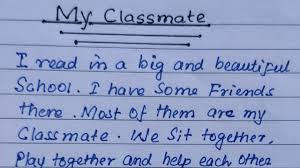 My Classmate
I read in a big and beautiful
School. I have Some Friends
there. Most of them are my
Classmate. We Sit together,
Play together and help each other